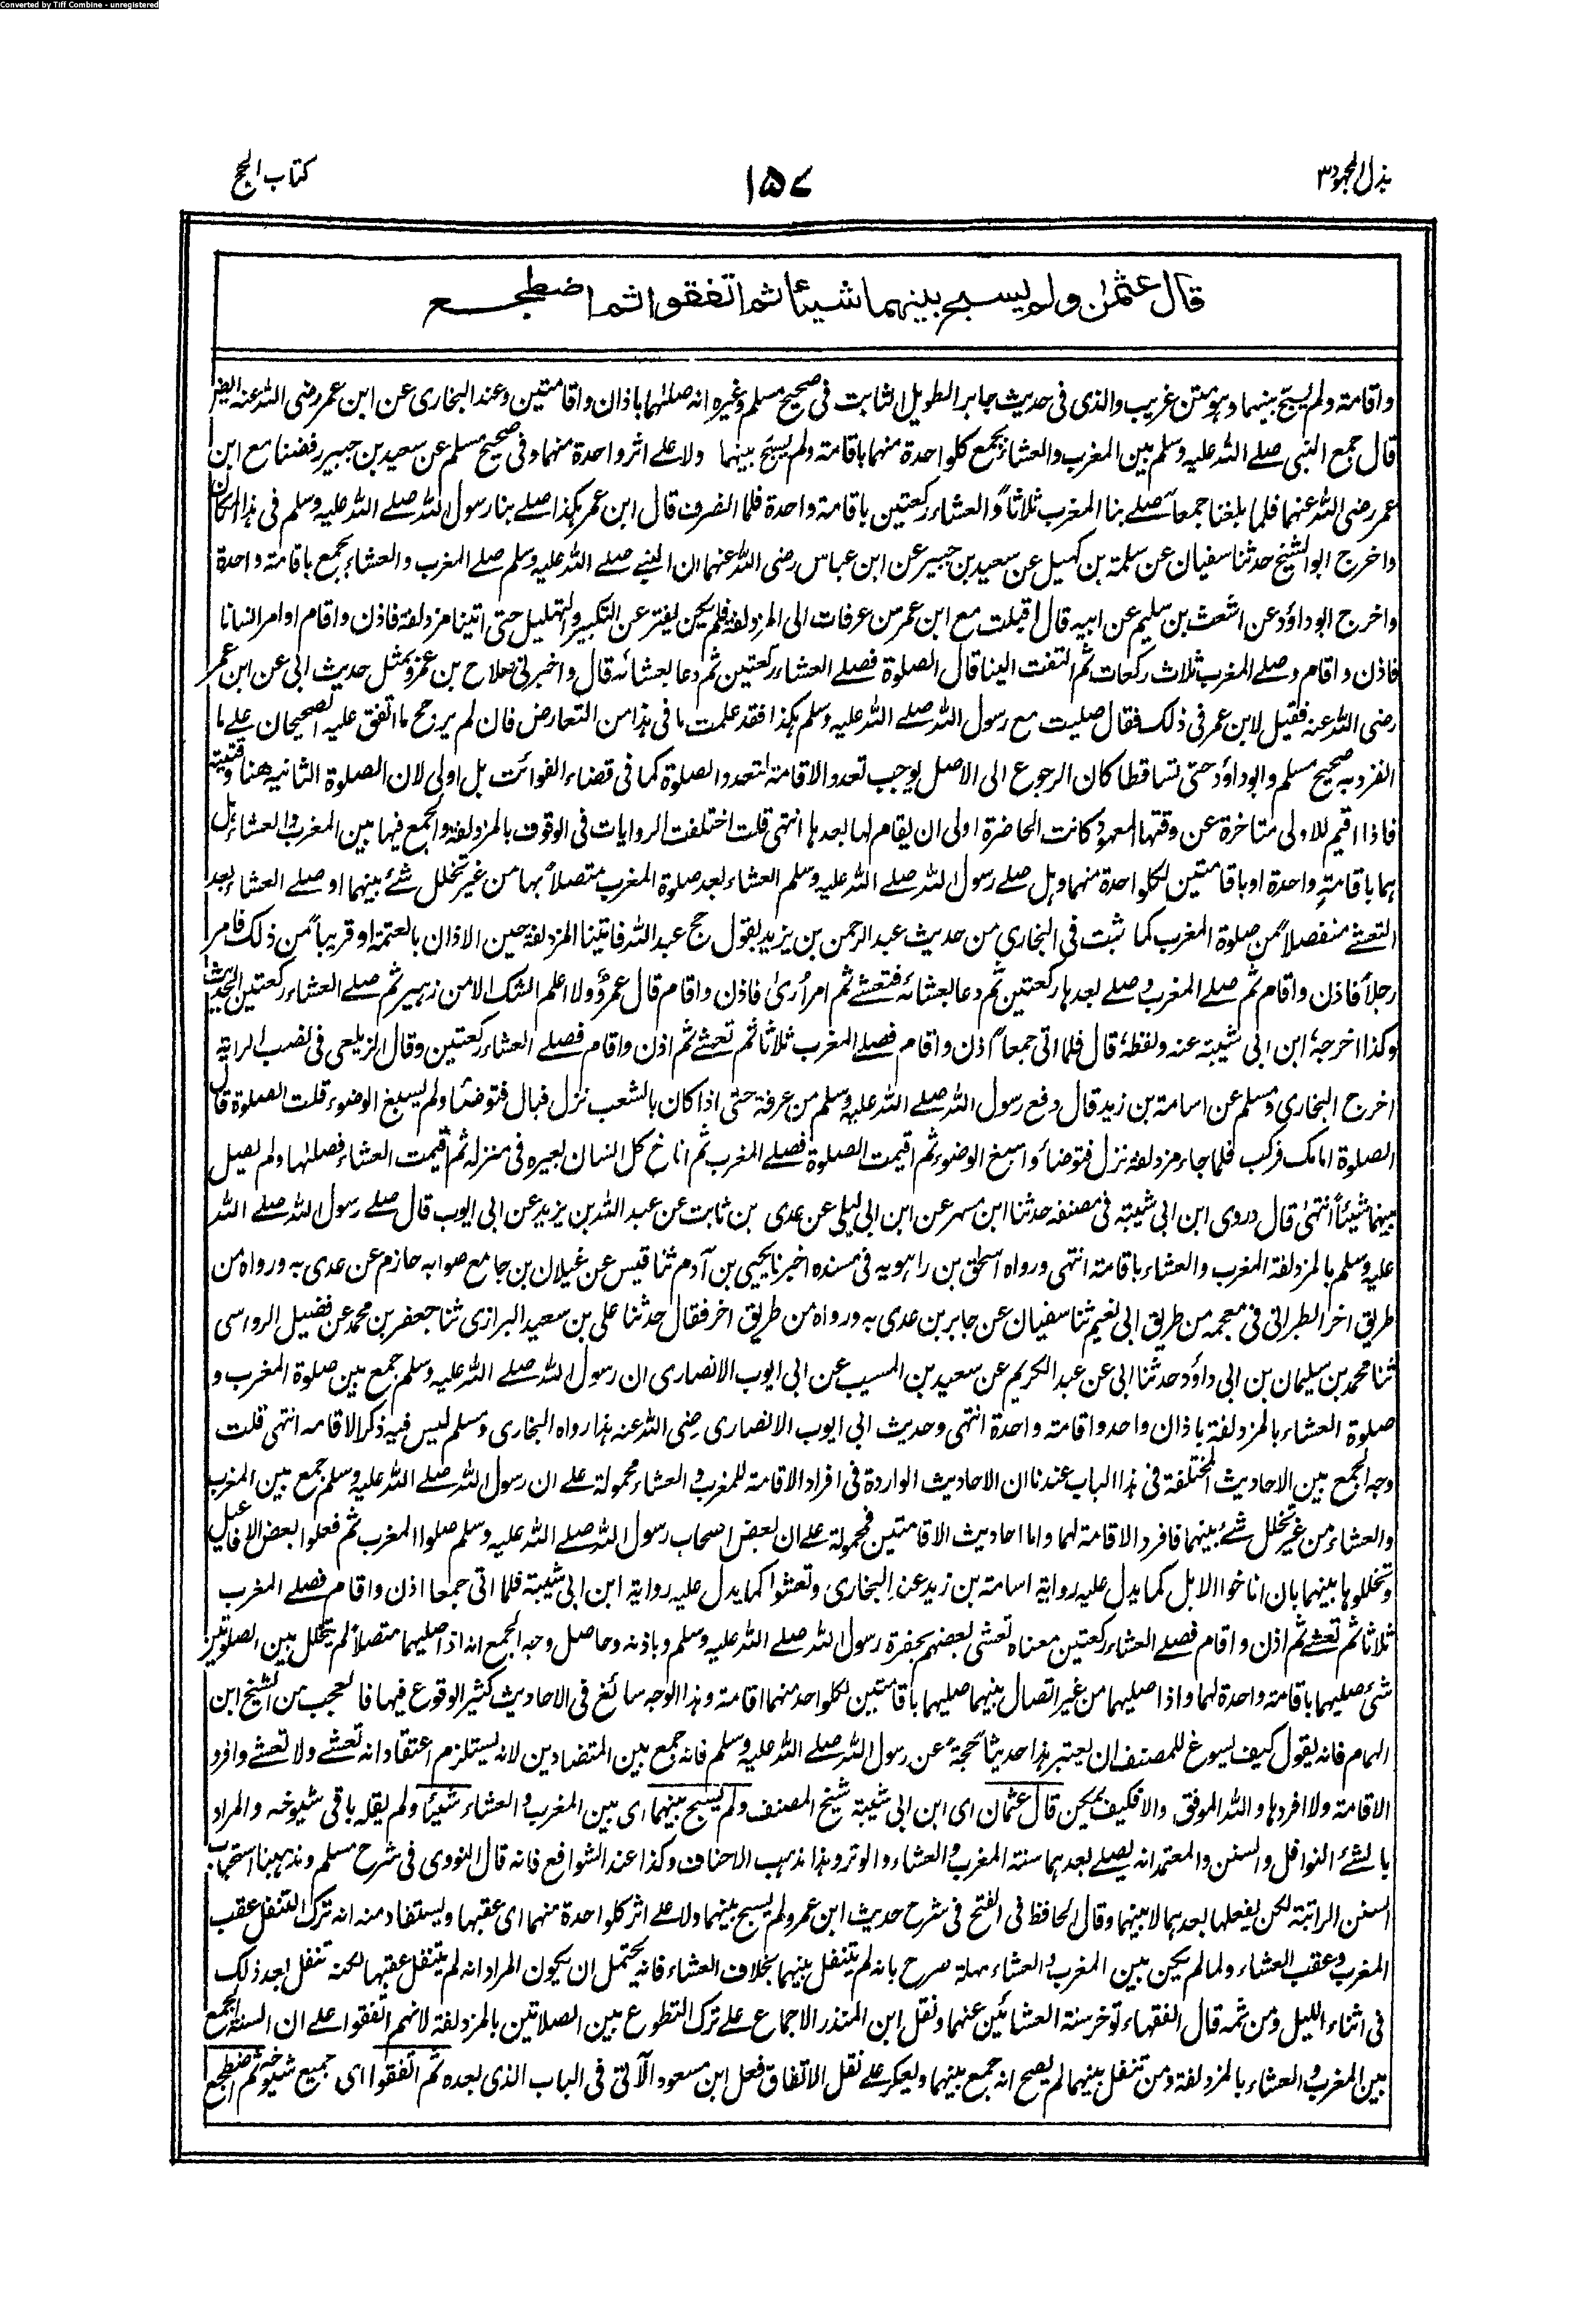 Converted by Tiff Combine - unregistered
بذل المجہود ٣
١٥٧
کتاب الحج
قال عثمٰن ولم یسبح بینهما شیئا ثم اتفقوا ثم اضطجع
واقامتہ ولم یسبح بینہما وہو متن غریب والذی فی حدیث جابر الطویل الثابت فی صحیح مسلم وغیرہ انہ صلٰہما باذان واقامتین وعند البخاری عن ابن عمر رضی اللہ عنہ ایضًا
قال جمع النبی صلے اللہ علیہ وسلم بین المغرب والعشاء بجمع کل واحدة منہما باقامتہ ولم یسبح بینہما ولا علے اثر واحدة منہما وفی صحیح مسلم عن سعید بن جبیر رفضنا مع ابن
عمر رضی اللہ عنہما فلما بلغنا جمعاً صلے بنا المغرب ثلاثاً والعشاء رکعتین باقامتہ واحدة فلما انصرف قال ابن عمر ہکذا صلے بنا رسول اللہ صلے اللہ علیہ وسلم فی ہذا المکان
واخرج ابو الشیخ حدثنا سفیان عن سلمة بن کہیل عن سعید بن جبیر عن ابن عباس رضی اللہ عنہما ان النبی صلے اللہ علیہ وسلم صلے المغرب والعشاء بجمع باقامتہ واحدة
واخرج ابو داؤد عن اشعث بن سلیم عن ابیہ قال اقبلت مع ابن عمر من عرفات الی المزدلفة فلم یکن یفتر عن التکبیر والتہلیل حتی اتینا مزدلفة فاذن واقام او امر انسانا
فاذن واقام وصلے المغرب ثلاث رکعات ثم التفت الینا قال الصلوة فصلے العشاء رکعتین ثم دعا بعشائہ قال واخبرنی علاج بن عمرو بمثل حدیث ابی عن ابن عمر
رضی اللہ عنہ فقیل لابن عمر فی ذلک فقال صلیت مع رسول اللہ صلے اللہ علیہ وسلم ہکذا فقد علمت ما فی ہذا من التعارض فان لم یرجح ما اتفق علیہ الصحیحان علے ما
انفرد بہ صحیح مسلم وابو داؤد حتی تساقطا کان الرجوع الی الاصل یوجب تعدد الاقامة لتعدد الصلوة کما فی قضاء الفوائت بل اولی لان الصلوة الثانیة ھنا وقتیة
فاذا اقیم للاولی متاخرة عن وقتہا المعہود کانت الحاضرة اولی ان یقام لہا بعدہا انتہی قلت اختلفت الروایات فی الوقوف بالمزدلفة والجمع فیہا بین المغرب والعشاء بل
ہما باقامتہ واحدة او باقامتین لکل واحدة منہما وہل صلے رسول اللہ صلے اللہ علیہ وسلم العشاء بعد صلوة المغرب متصلاً بہا من غیر تخلل شئ بینہما او صلے العشاء بعد
التعشے منفصلاً من صلوة المغرب کما ثبت فی البخاری من حدیث عبد الرحمن بن یزید یقول حج عبد اللہ فاتینا المزدلفة حین الاذان بالعتمة او قریباً من ذلک فامر
رجلاً فاذن واقام ثم صلے المغرب وصلے بعدہا رکعتین ثم دعا بعشائہ فتعشے ثم امر أرىٰ فاذن واقام قال عمرو ولا اعلم الشک الا من زہیر ثم صلے العشاء رکعتین الحدیث
وکذا اخرجہ ابن ابی شیبة عنہ ولفظہ قال فلما اتی جمعاً اذن واقام فصلے المغرب ثلاثا ثم تعشے ثم اذن واقام فصلے العشاء رکعتین وقال الزیلعی فی نصب الرایة
اخرج البخاری ومسلم عن اسامة بن زید قال دفع رسول اللہ صلے اللہ علیہ وسلم من عرفة حتی اذا کان بالشعب نزل فبال فتوضأ ولم یسبغ الوضوء قلت الصلوة قال
الصلوة امامک فرکب فلما جاء مزدلفة نزل فتوضأ واسبغ الوضوء ثم اقیمت الصلوة فصلے المغرب ثم اناخ کل انسان بعیرہ فی منزلہ ثم اقیمت العشاء فصلٰہا ولم یصل
بینہما شیئاً انتہیٰ قال وروی ابن ابی شیبة فی مصنفہ حدثنا ابن مسہر عن ابن ابی لیلی عن عدی بن ثابت عن عبد اللہ بن یزید عن ابی ایوب قال صلے رسول اللہ صلے اللہ
علیہ وسلم بالمزدلفة المغرب والعشاء باقامتہ انتہی ورواہ اسحٰق بن راہویہ فی مسندہ اخبرنا یحیی بن آدم ثنا قیس عن غیلان بن جامع صوابہ حازم عن عدی بہ ورواہ من
طریق اخر الطبرانی فی معجمہ من طریق ابی نعیم ثنا سفیان عن جابر بن عدی بہ ورواہ من طریق اخر فقال حدثنا علی بن سعید البرازی ثنا جعفر بن محمد عن فضیل الرواسی
ثنا محمد بن سلیمان بن ابی داؤد حدثنا ابی عن عبد الکریم عن سعید بن المسیب عن ابی ایوب الانصاری ان رسول اللہ صلے اللہ علیہ وسلم جمع بین صلوة المغرب و
صلوة العشاء بالمزدلفة باذان واحد واقامتہ واحدة انتہی وحدیث ابی ایوب الانصاری رضی اللہ عنہ ہذا رواہ البخاری ومسلم لیس فیہ ذکر الاقامہ انتہی قلت
وجہ الجمع بین الاحادیث المختلفة فی ہذا الباب عندنا ان الاحادیث الواردة فی افراد الاقامة للمغرب والعشاء محمولة علے ان رسول اللہ صلے اللہ علیہ وسلم جمع بین المغرب
والعشاء من غیر تخلل شئ بینہما فافرد الاقامة لہما واما احادیث الاقامتین فمحمولة علے ان بعض اصحاب رسول اللہ صلے اللہ علیہ وسلم صلوا المغرب ثم فعلوا بعض الافاعیل
وتخللوہا بینہما بان اناخوا الابل کما یدل علیہ روایة اسامة بن زید عند البخاری وتعشوا کما یدل علیہ روایة ابن ابی شیبة فلما اتی جمعا اذن واقام فصلے المغرب
ثلاثا ثم تعشے ثم اذن واقام فصلے العشاء رکعتین معناہ تعشی بعضہم بحضرة رسول اللہ صلے اللہ علیہ وسلم وباذنہ وحاصل وجہ الجمع انہ اذا صلیہما متصلاً لم یتخلل بین الصلوتین
شئ صلیہما باقامتہ واحدة لہما واذا صلیہما من غیر اتصال بینہما صلیہما باقامتین لکل واحد منہما اقامتہ وہذا الوجہ سائغ فی الاحادیث کثیر الوقوع فیہا فالعجب من الشیخ ابن
الہمام فانہ یقول کیف یسوغ للمصنف ان یعتبر ہذا حدیثاً حجة عن رسول اللہ صلے اللہ علیہ وسلم فانہ جمع بین المتضادین لانہ یستلزم اعتقاد انہ تعشے ولا تعشے وافرد
الاقامة ولا افردہا واللہ الموفق والا فکیف یمکن قال عثمان ای ابن ابی شیبة شیخ المصنف ولم یسبح بینہما ای بین المغرب والعشاء شیئاً ولم یقلہ باقی شیوخہ والمراد
بالشئ النوافل والسنن والمعتمد انہ یصلے بعدہما سنتہ المغرب والعشاء والوتر وہذا مذہب الاحناف وکذا عند الشوافع فانہ قال النووی فی شرح مسلم ومذہبنا استحباب
السنن الراتبة لکن یفعلہا بعدہما لا بینہما وقال الحافظ فی الفتح فی شرح حدیث ابن عمر ولم یسبح بینہما ولا علے اثر کل واحدة منہما ای عقبہا ویستفاد منہ انہ ترک التنفل عقب
المغرب وعقب العشاء ولما لم یکن بین المغرب والعشاء مہلة صرح بانہ لم یتنفل بینہما بخلاف العشاء فانہ یحتمل ان یکون المراد انہ لم یتنفل عقبہا لکنہ تنفل بعد ذلک
فی اثناء اللیل ومن ثمہ قال الفقہاء توخر سنة العشائین عنہما ونقل ابن المنذر الاجماع علے ترک التطوع بین الصلاتین بالمزدلفة لانہم اتفقوا علے ان السنة الجمع
بین المغرب والعشاء بالمزدلفة ومن تنفل بینہما لم یصح انہ جمع بینہما ویعکر علے نقل الاتفاق فعل ابن مسعود الآتی فی الباب الذی بعدہ ثم اتفقوا ای جمیع شیوخہ ثم اضطجع